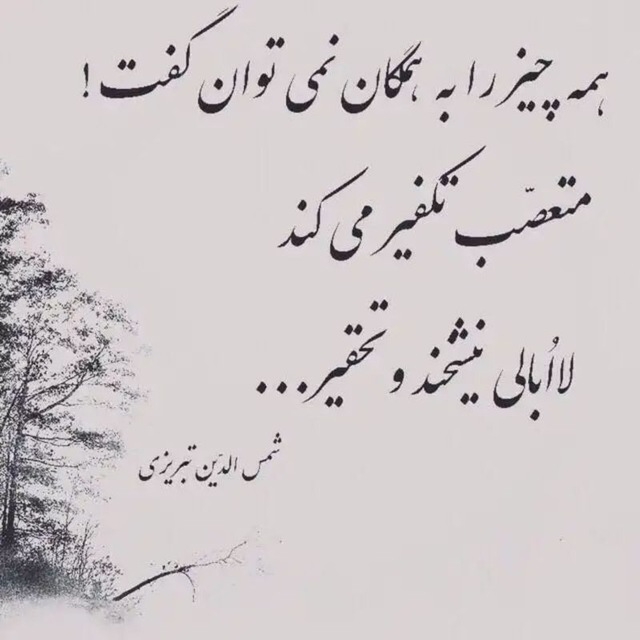 همه چیز را به همگان نمی توان گفت!
متعصّب تکفیر می کند
لااُبالی نیشخند و تحقیر...
شمس الدّین تبریزی